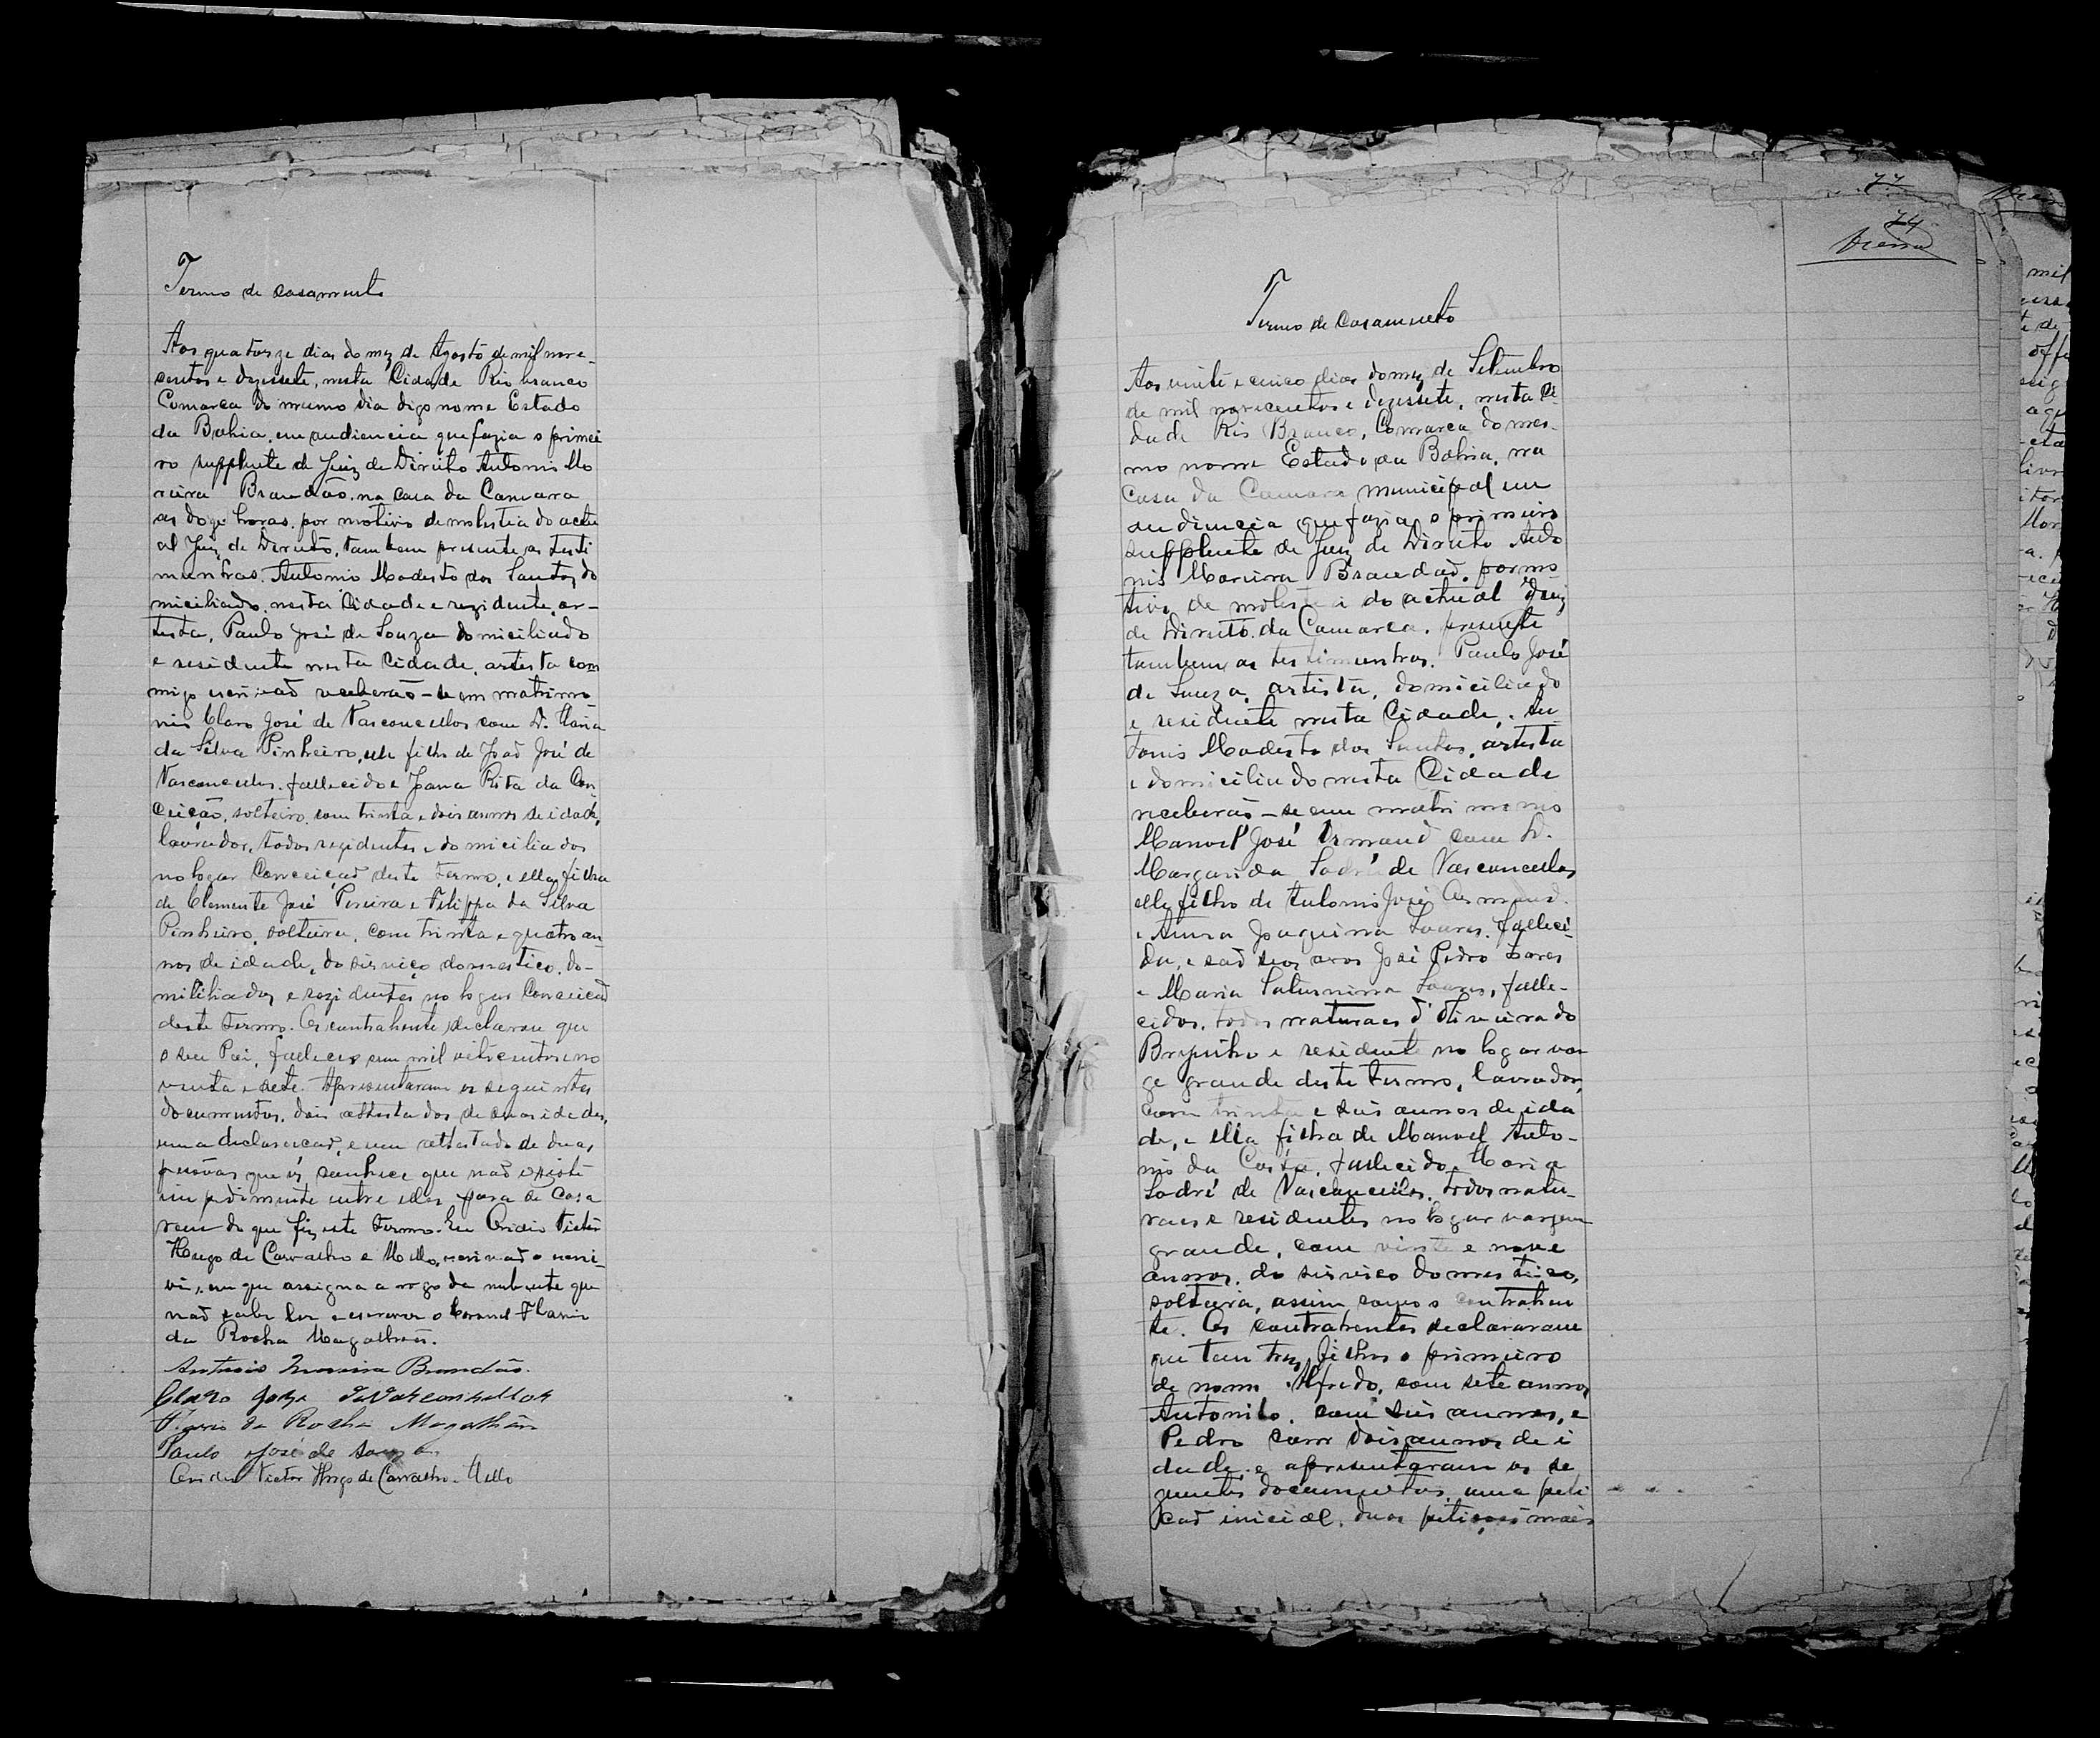 Termo de casamento
Aos quatorze dias do mez de Agosto de mil nove-
centos e dezessete, nesta Cidade Rio branco
Comarca do mesmo dia digo nome Estado
da Bahia, em audiencia que fazia o primei
ro supplente de Juiz de Direito Antonio Mo
reira Brandão, na casa da Camara
as doze horas, por motivo de molestia do actu
al Juiz de Direito, tambem presente as testi
munhas. Antonio Modesto dos Santos, do
miciliado nesta Cidade e rezidente, ar-
tista, Paulo José de Souza domiciliado
e residente nesta Cidade, artista com
migo escrivaõ receberaõ-se em matrimo
nio Claro José de Vasconcellos com D. Maria
da Silva Pinheiro, elle filho de Joaõ José de
Vasconcellos, fallecido e Joana Rita da Con
ceição, solteiro, com trinta e dois annos de idade,
lavrador, todos rezidentes e domiciliados
no logar Conceiçaõ deste termo, e ella filha
de Clemente José Pereira e Filippa da Silva
Pinheiro, solteira, com trinta e quatro an
nos de idade, do serviço domestico, do-
miciliados e rezidentes no logar Conceicaõ
deste termo. Os contrahente declarou que
o seu Pai, falleceo em mil oitocentos e no
venta e sete. Apresentaram os seguintes
documentos, dois attestados de suas idades,
uma declaracaõ, e um attestado de duas
pessôas que os conhece que naõ existe
impedimento entre elles para se casa
rem do que fiz este termo. Eu Ovidio Victor
Hugo de Carvalho e Mello, escrivaõ o escre-
vi, em que assigna a rogo da nubente que
naõ sabe ler e escrever o Coronel Flavio
da Rocha Magalhães.
Antonio Moreira Brandão.
Claro Joze de Vasconsellos
Flavio da Rocha Magalhães
Paulo José de Souza
Ovidio Victor Hugo de Carvalho e Mello
77
74
Termo de Casamento
Aos vinte e cinco dias do mez de Setembro
de mil novecentos e dezessete, nesta Ci
dade Rio Branco, Comarca do mes-
mo nome Estado da Bahia, na
casa da Camara municipal em
audiencia que fazia o primeiro
supplente de Juiz de Direito Anto
nio Moreira Brandaõ, por mo
tivo de molestia do actual Juiz
de Direito da Comarca, presente
tambem as testimunhas. Paulo José
de Souza, artista, domiciliado
e residente nesta Cidade, An
tonio Modesto dos Santos, artista
e domiciliado nesta Cidade
receberaõ-se em matrimonio
Manoel José Ormand com D.
Margarida Sodré de Vasconcellos
elle filho de Antonio José Ormand
e Anna Joaquina Soares, falleci-
da, e saõ seos avos José Pedro Soares
e Maria Saturnina Soares, falle-
cidos, todos naturaes d'Oliveira do
Brejinho e residente no logar var
ge grande deste termo, lavrador,
com trinta e seis annos de ida
de, e ella filha de Manoel Anto-
nio da Costa, fallecido e Maria
Sodré de Vasconcellos, todos natu-
raes e residentes no logar vargem
grande, com vinte e nove
annos, do serviço domestico,
solteira, assim como o contrahen
te. Os contrahentes declararam
que tem tres filhos o primeiro
de nome Alfredo, com sete annos
Antonilo, com seis annos, e
Pedro com dois annos de i
dade, e apresentaram os se
guintes documentos, uma peti
çaõ inicial, duas petições mais